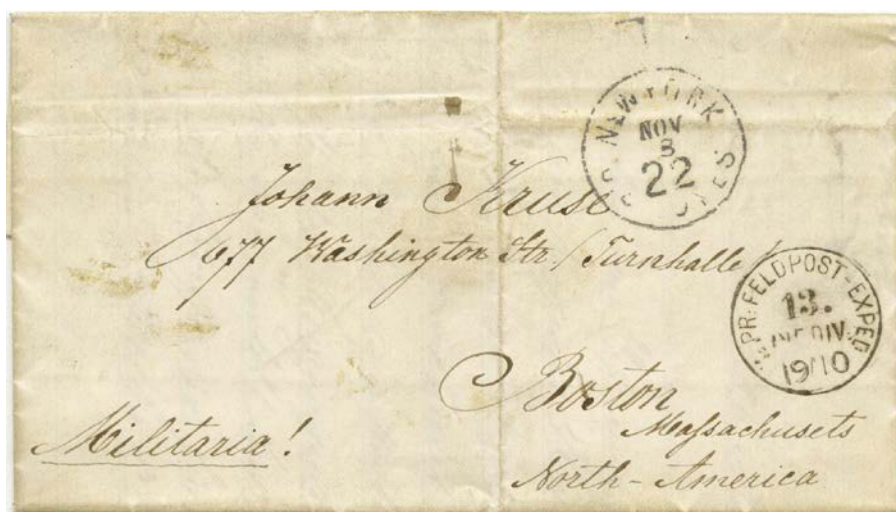 NEW YORK
NOV
3
22
Johann Kruse
677 Washington Str. (Turnhalle)
K. PR. FELDPOST-EXPED
13.
INF. DIV.
19/10
Boston
Massachusets
Militaria!
North-America